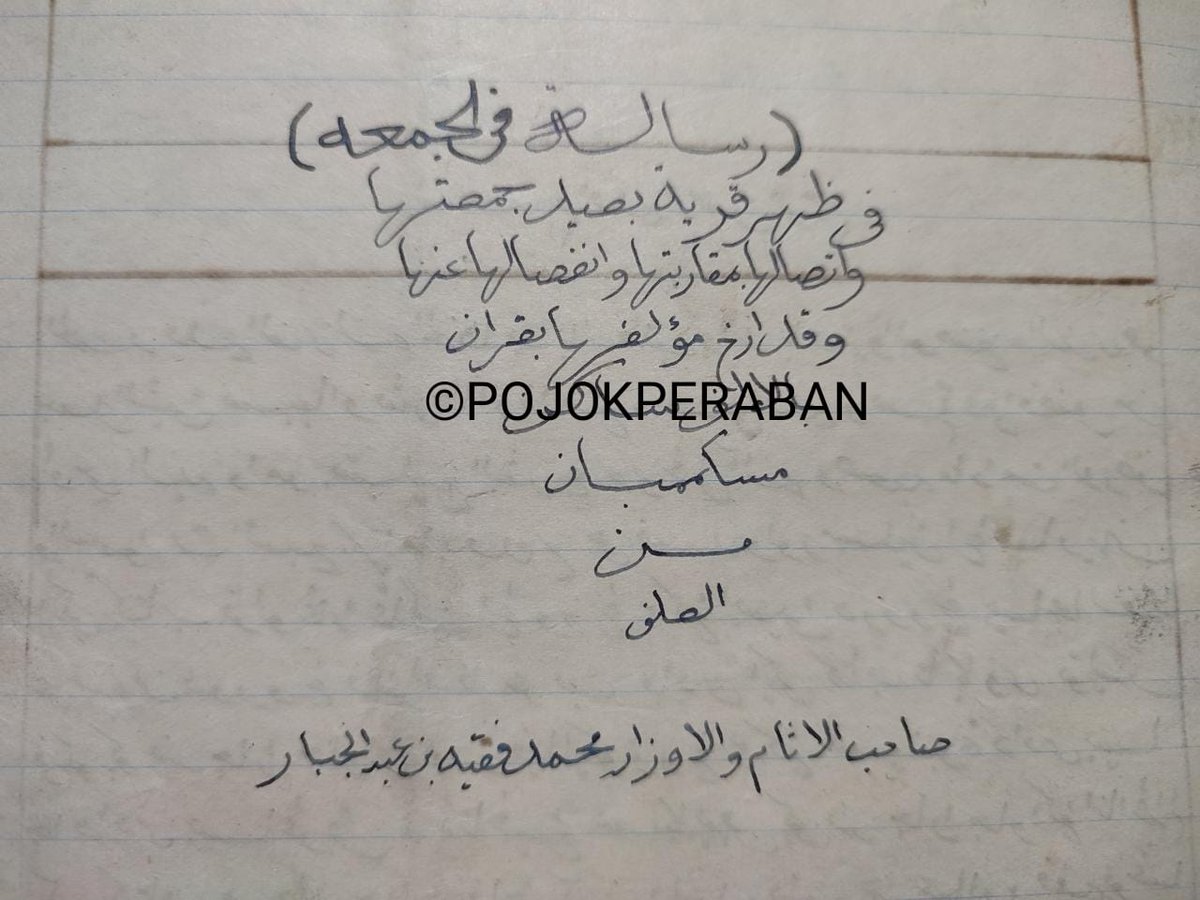 (رسالة في الجمعه)
في ظهر قرية بصيل جمعتها
واتصالها بمقاربتها وانفصالها عنها
وقد ارخ مؤلفها بقران
©POJOKPERABAN
مسكممبان
من
صاحب الاثام والاوزار محمد فقيه بن عبد الجبار